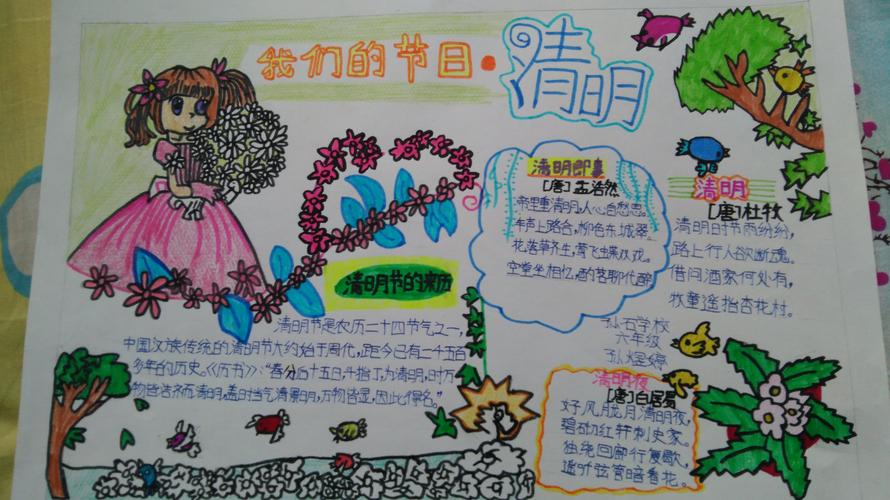 我们的节日·清明
清明节的来历
清明节是农历二十四节气之一,
中国汉族传统的清明节大约始于周代,距今已有二千五百
多年的历史。《历书》:“春分后十五日,斗指丁,为清明,时万
物皆洁齐而清明,盖时当气清景明,万物皆显,因此得名。”
清明即事
[唐]孟浩然
帝里重清明,人心自愁思。
车声上路合,柳色东城翠。
花落草齐生,莺飞蝶双戏。
空堂坐相忆,酌茗聊代醉
清明
[唐]杜牧
清明时节雨纷纷,
路上行人欲断魂。
借问酒家何处有,
牧童遥指杏花村。
孙石学校
六年级
孙煜婷
清明夜
[唐]白居易
好风胧月清明夜,
碧砌红轩刺史家。
独绕回廊行复歇,
遥听弦管暗看花。